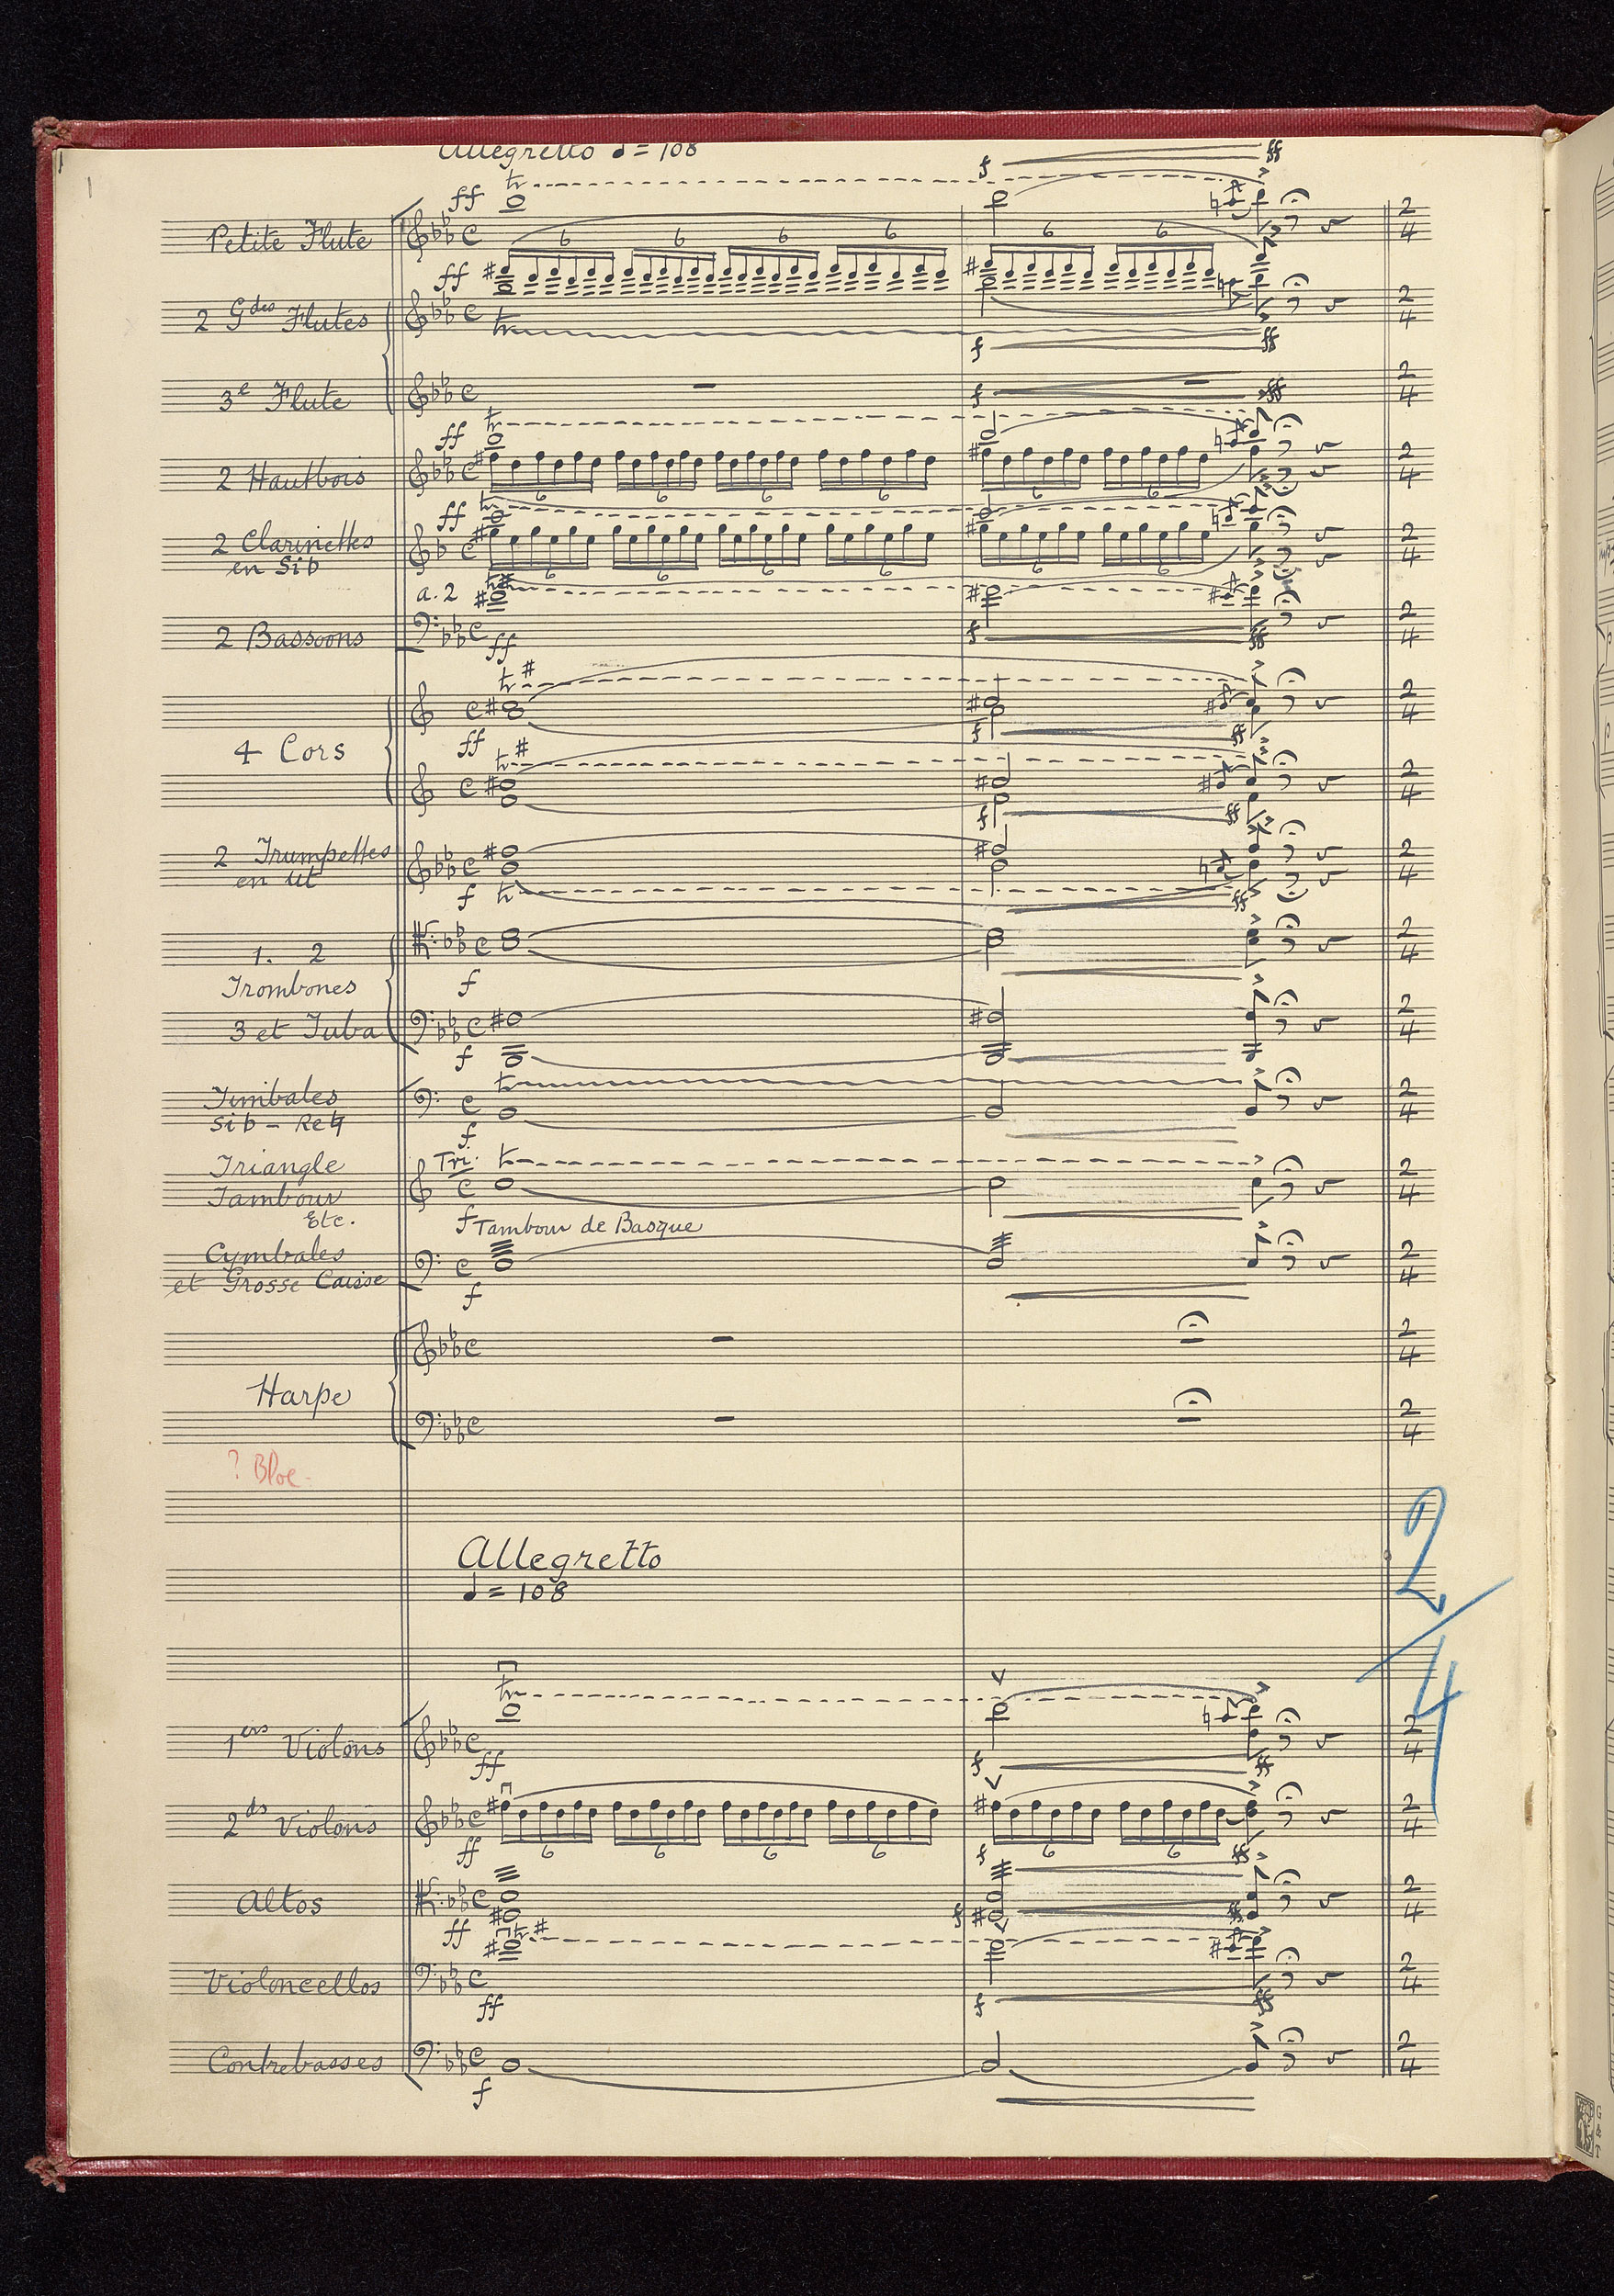 1
Allegretto ♩= 108
Petite Flute
2 Gdes Flutes
3e Flute
2 Hautbois
2 Clarinettes
en Sib
a. 2
2 Bassoons
4 Cors
2 Trumpettes
en ut
1. 2
Trombones
3 et Tuba
Timbales
Sib - Re♮
Triangle
Tri.
Tambour
Etc.
Tambour de Basque
Cymbales
et Grosse Caisse
Harpe
? Bloc.
Allegretto
♩ = 108
2/4
1ers Violons
2ds Violons
Altos
Violoncellos
Contrebasses